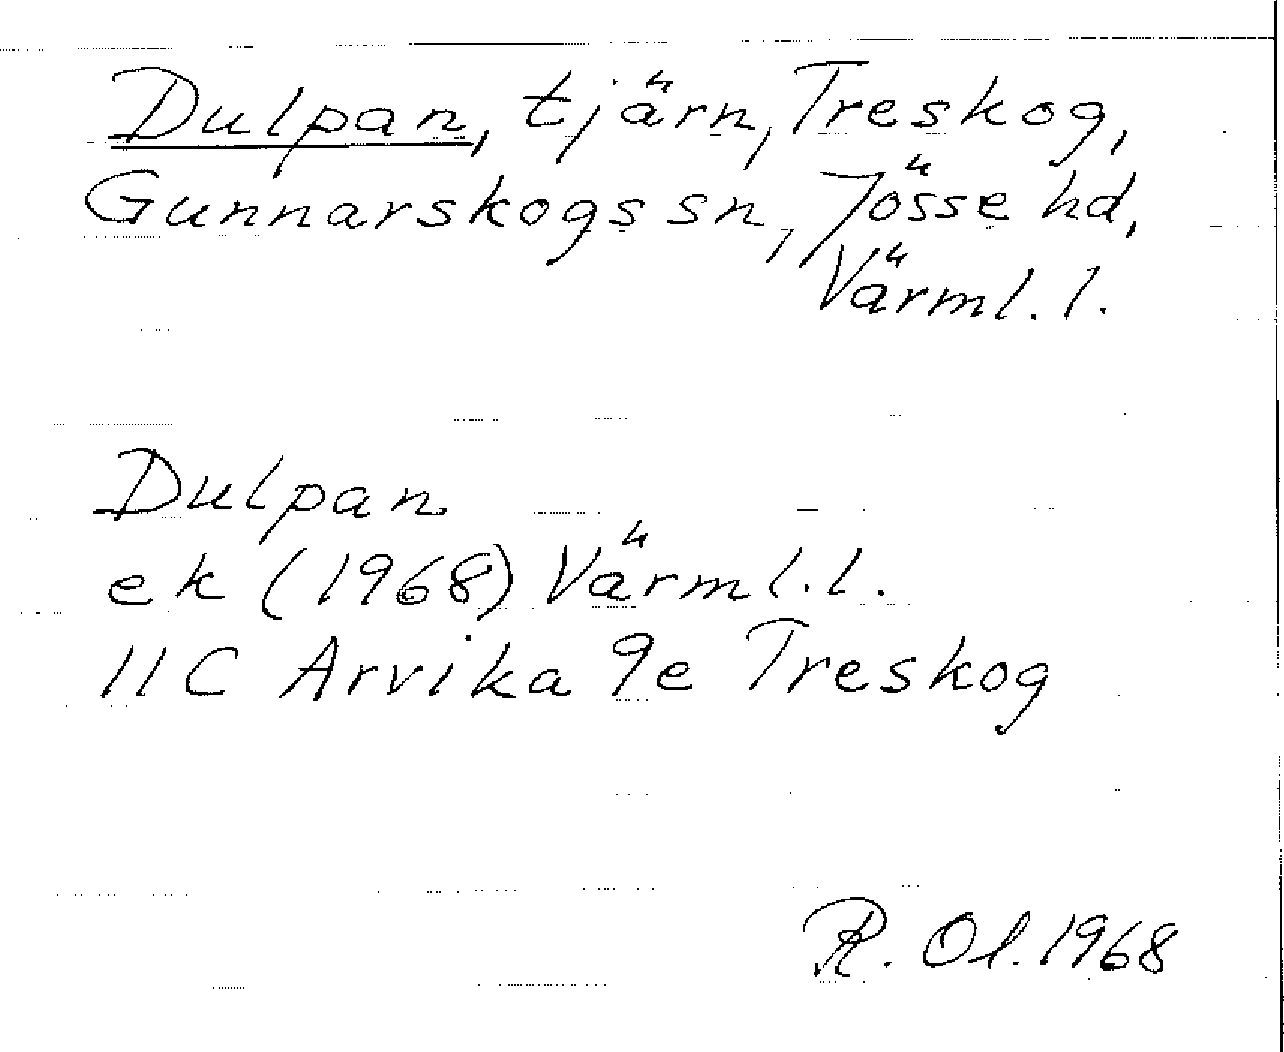 Dulpan, tjärn, Treskog,
Gunnarskogs sn, Jösse hd,
Värml. l.
Dulpan
ek (1968) Värml. l.
11C Arvika 9e Treskog
R. Ol. 1968